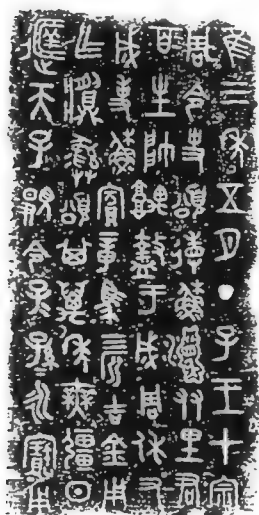 隹三年五月丁子王才宗
周令史頌省蘇友里君
百生帥盩于成周休又
成事蘇賓章馬三匹吉金用
乍彝頌其萬年無疆日
天子顯令子孫永寶用